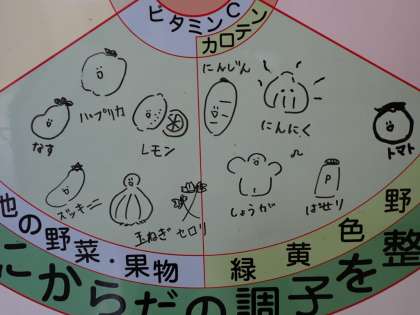 ビタミンC
カロテン
パプリカ
なす
レモン
にんじん
にんにく
トマト
ズッキーニ
玉ねぎ
セロリ
しょうが
ぱせり
P
他の野菜・果物
緑黄色野
にからだの調子を整